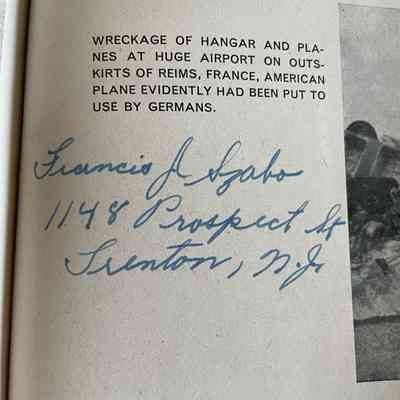 WRECKAGE OF HANGAR AND PLA-
NES AT HUGE AIRPORT ON OUTS-
KIRTS OF REIMS, FRANCE, AMERICAN
PLANE EVIDENTLY HAD BEEN PUT TO
USE BY GERMANS.
Francis J Szabo
1148 Prospect St
Trenton, N.J.